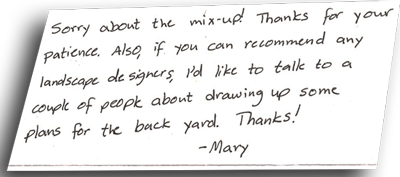 Sorry about the mix-up! Thanks for your
patience. Also, if you can recommend any
landscape designers, I'd like to talk to a
couple of people about drawing up some
plans for the back yard. Thanks!
-Mary